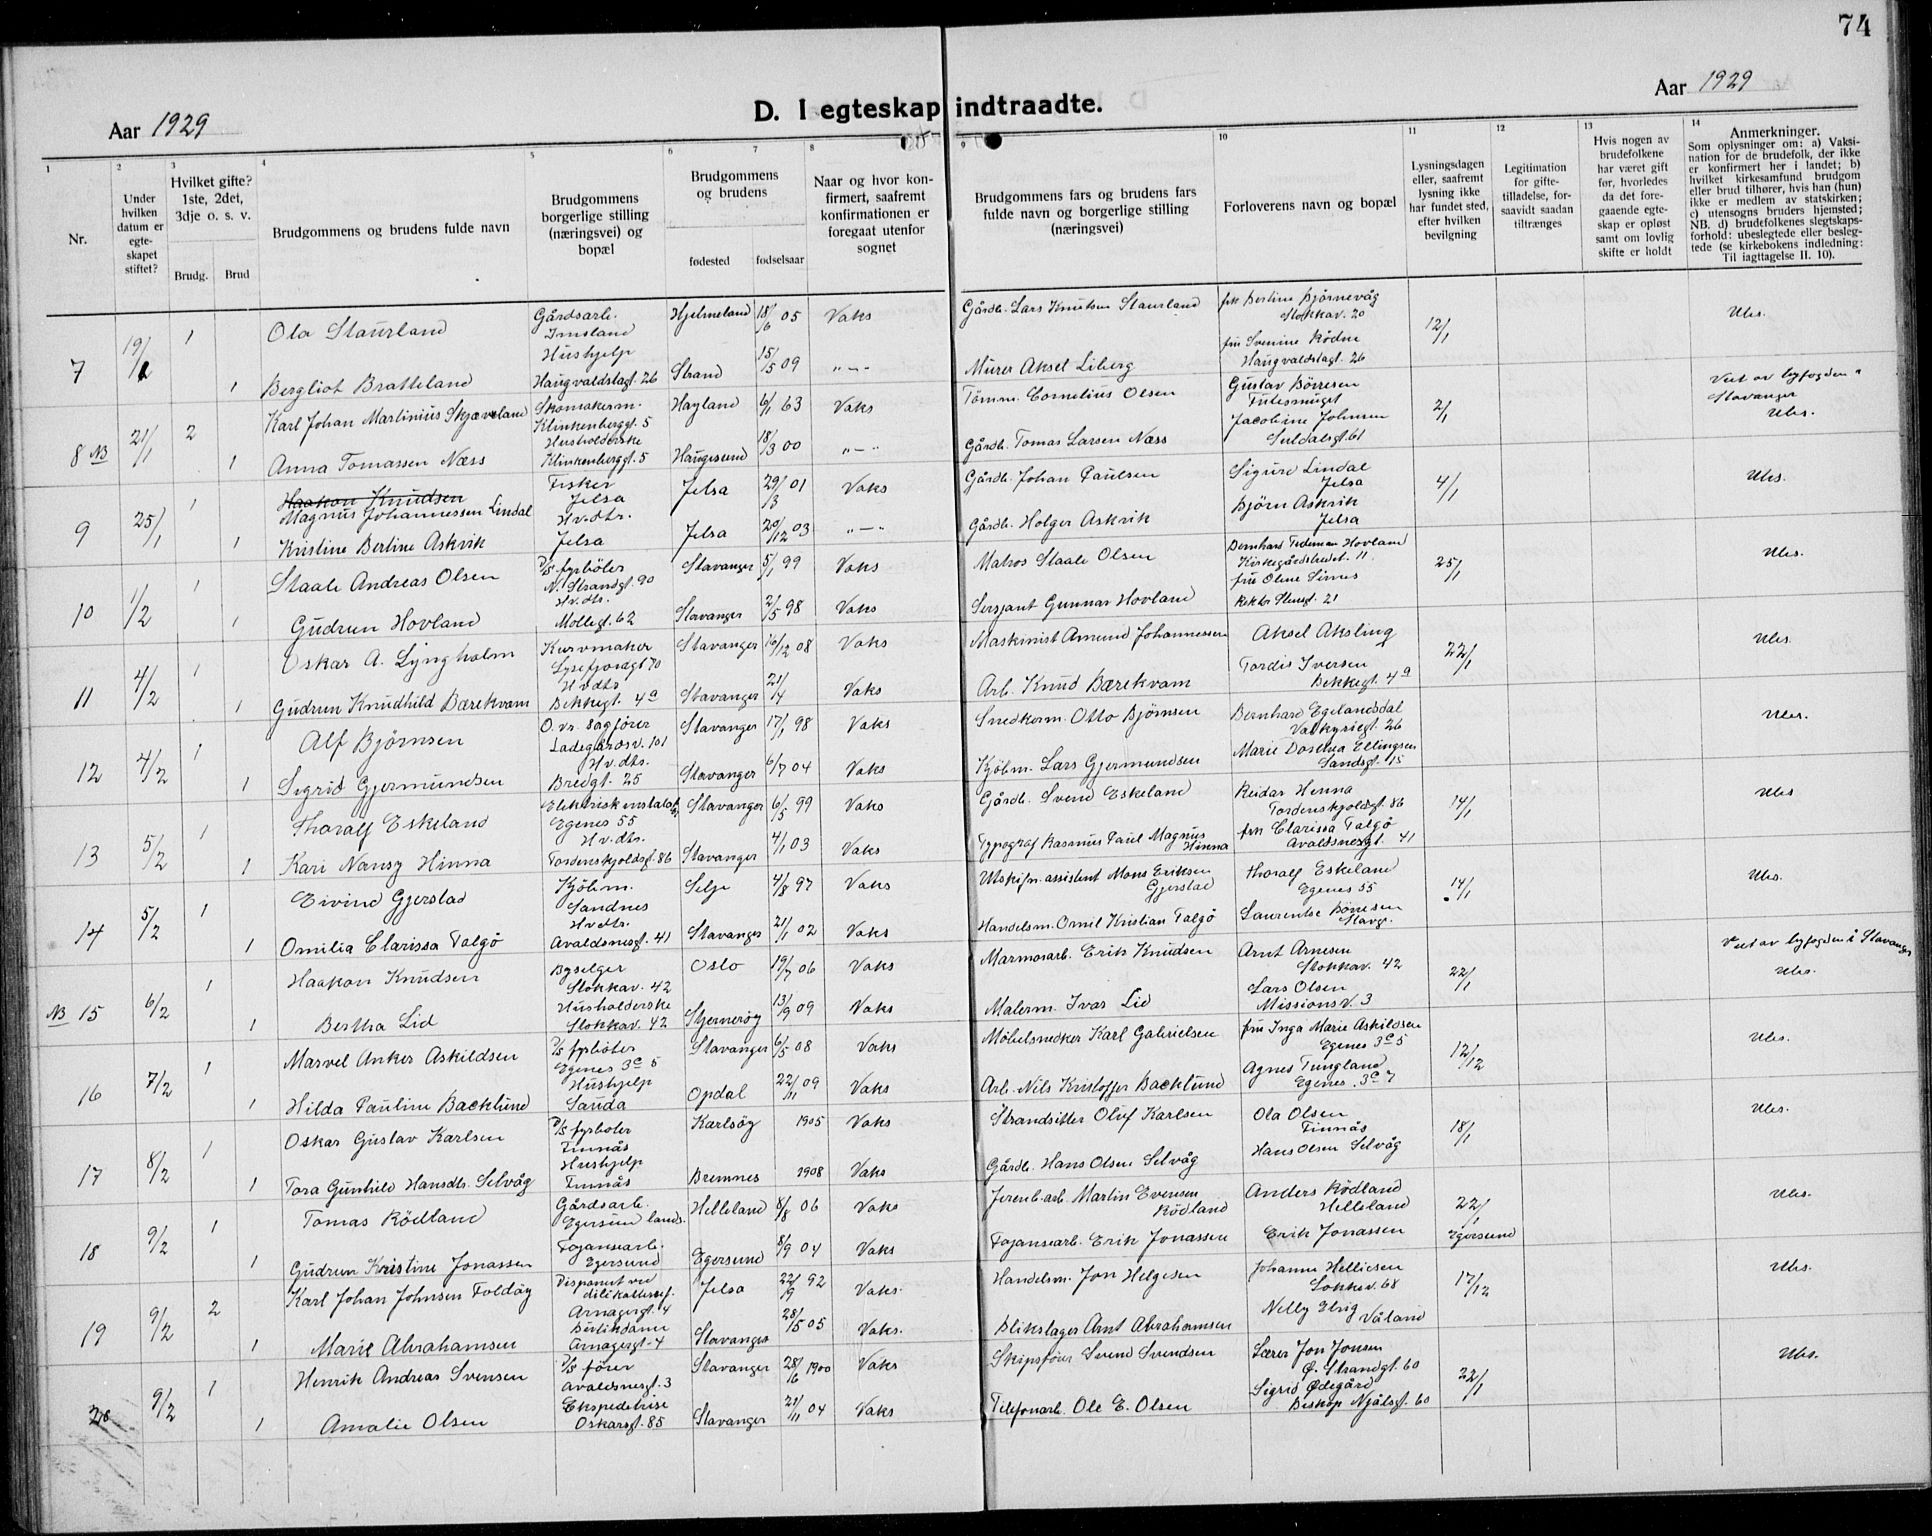 74
Aar 1929
D. I egteskap indtraadte.
Aar 1929
1 2 3 4 5 6 7 8 9 10 11 12 13 14
Nr.
Under hvilken datum er egte-skapet stiftet?
Hvilket gifte? 1ste, 2det, 3dje o. s. v.
Brudg. Brud
Brudgommens og brudens fulde navn
Brudgommens borgerlige stilling (næringsvei) og bopæl
Brudgommens og brudens
fødested fødselsaar
Naar og hvor kon-firmert, saafremt konfirmationen er foregaat utenfor sognet
Brudgommens fars og brudens fars fulde navn og borgerlige stilling (næringsvei)
Forloverens navn og bopæl
Lysningsdagen eller, saafremt lysning ikke har fundet sted, efter hvilken bevilgning
Legitimation for gifte-tilladelse, for-saavidt saadan tiltrænges
Hvis nogen av brudefolkene har været gift før, hvorledes da det fore-gaaende egte-skap er opløst samt om lovlig skifte er holdt
Anmerkninger.
Som oplysninger om: a) Vaksi-nation for de brudefolk, der ikke er konfirmert her i landet; b) hvilket kirkesamfund brudgom eller brud tilhører, hvis han (hun) ikke er medlem av statskirken; c) utensogns bruders hjemsted; NB. d) brudefolkenes slegtskaps-forhold: ubeslegtede eller besleg-tede (se kirkebokens indledning: Til iagttagelse II. 10).
7 19/2 1 Ola Staurland Gårdsarb. Imsland Hjelmeland 18/6 05 Vaks Gårdb. Lars Knutsen Staurland frk Bertine Bjørnevåg Stokkav. 20 12/1 Ubs.
1 Bergliot Bratteland Hushjelp Haugvaldstagt. 26 Strand 15/5 09 "—" Murer Aksel Liberg fru Svenine Rödne Haugvaldstagt. 26
8 NB 21/1 2 Karl Johan Martinius Skjæveland Skomakerm. Klinkenberggt. 5 Høyland 6/1 63 Vaks Tömm. Cornelius Olsen Gustav Börresen Futesmuget 2/1 Viet av byfogden i Stavanger Ubs.
1 Anna Tomassen Næss Husholderske Klinkenberggt. 5 Haugesund 18/3 00 "—" Gårdb. Tomas Larsen Næss Jacobine Johnsen Suldalsgt. 61
9 25/1 1 Haakon Knudsen Magnus Johannessen Lindal Fisker Jelsa Jelsa 29/3 01 Vaks Gårdb. Johan Paulsen Sigurd Lindal Jelsa 4/1 Ubs.
1 Kristine Bertine Askvik Hv.dtr. Jelsa Jelsa 20/12 03 "—" Gårdb. Holger Askvik Bjørn Askvik Jelsa
10 1/2 1 Staale Andreas Olsen D/S fyrböter N. Strandgt. 90 Stavanger 5/1 99 Vaks Matros Staale Olsen Bernhard Tedeman Hovland Kirkegårdsbredet. 11 25/1 Ubs.
1 Gudrun Hovland Hv.dtr. Mollegt. 62 Stavanger 2/5 98 Vaks Sersjant Gunnar Hovland fru Olene Sirnes 21
11 4/2 1 Oskar A. Lyngholm Kurvmaker Lysefjordgt 70 Stavanger 16/12 08 Vaks Maskinist Amund Johannessen Aksel Aksling 22/1 Ubs.
1 Gudrun Knudhild Bærekvam Hv.dtr Bekkegt. 4a Stavanger 21/14 Vaks Arb. Knud Bærekvam Tordis Iversen Bekkegt. 4a
12 4/2 1 Alf Bjørnsen O.r. sagfører Ladegårdsv. 101 Stavanger 17/1 98 Vaks Snedkerm. Otto Bjørnsen Bernhard Egelandsdal Valkyriegt. 26 Ubs.
1 Sigrid Gjermundsen Hv.dtr. Bredgt. 25 Stavanger 6/7 04 Vaks Kjöbm. Lars Gjermundsen Marie Dosthea Ellingsen Sandsgt. 15
13 5/2 1 Thoralf Eskeland Elektrisk instalatör Egenes 55 Stavanger 6/5 99 Vaks Gårdb. Svend Eskeland Reidar Hinna Tordenskjoldsgt. 86 14/1 Ubs
1 Kari Nansy Hinna Hv.dtr. Tordenskjoldsgt. 86 Stavanger 4/1 03 Vaks Typograf Rasmus Paul Magnus Hinna frk Clarissa Talgö Avaldsnesgt. 41
14 5/2 1 Eivind Gjerstad Kjöbm. Sandnes Selje 4/8 97 Vaks Utskifn. assistent Mons Eriksen Gjerstad Thoralf Eskeland Egenes 55 14/1 Ubs.
1 Omilia Clarissa Talgö Hv.dtr. Avaldsnesgt. 41 Stavanger 21/1 02 Vaks Handelsm. Omil Kristian Talgö Laurentse Börresen Stavgr.
NB 15 6/2 1 Haakon Knudsen Byselger Stokkav. 42 Oslo 19/7 06 Vaks Marmorarb. Erik Knudsen Arnt Arnesen Stokkav. 42 22/1 Viet av byfogden i Stavanger Ubs.
1 Bertha Lid Husholderske Stokkav. 42 Stjernerøy 13/9 09 Vaks Malerm. Ivar Lid Lars Olsen Missionsv. 3
16 7/2 1 Marvel Anker Askildsen D/S fyrböter Egenes 3c 5 Stavanger 6/5 08 Vaks Möbelsnedker Karl Gabrielsen fru Inga Marie Askildsen Egenes 3c 5 12/12 Ubs.
1 Hilda Pauline Backlund Hushjelp Sauda Opdal 22/11 09 Vaks Arb. Nils Kristoffer Backlund Agnes Tungland Egenes 3c 7
17 8/2 1 Oskar Gustav Karlsen D/S fyrböter Finnås Karlsöy 1905 Vaks Strandsitter Oluf Karlsen Ola Olsen Finnås 18/1 Ubs.
1 Tora Gunhild Hansdtr. Selvåg Hushjelp Finnås Bremnes 1908 Vaks Gårdb. Hans Olsen Selvåg Hans Olsen Selvåg
18 9/2 1 Tomas Rödland Gårdsarb. Egersund lands. Helleland 8/8 06 Vaks Jernb. arb. Martin Evensen Rödland Anders Rödland Helleland 22/1 Egersund Ubs.
1 Gudrun Kristine Jonassen Fajansearb. Egersund Egersund 8/9 04 Vaks Fajansearb. Erik Jonassen Erik Jonassen
19 9/2 2 Karl Johan Johnsen Foldöy Disponent ved dilikattesef. Arnagergt. 4 Jelsa 22/9 92 Vaks. Handelsm. Jon Helgesen Johanne Helliesen Stokkev. 68 17/12 Ubs.
1 Marie Abrahamsen Butikdame Arnagergt. 4 Stavanger 28/5 05 Vaks. Blikslager Arnt Abrahamsen Nelly Elvig Våland
20 9/2 1 Henrik Andreas Svensen D/S förer Avaldsnesgt. 3 Stavanger 28/6 1900 Vaks Skipsfører Svend Svendsen Lærer Jon Jonsen Ø. Strandgt. 60 22/1 Ubs.
1 Amalie Olsen Ekspeditrise Oskarsgt. 85 Stavanger 21/11 04 Vaks Telefonarb. Ole E. Olsen Sigrid Ødegård Biskop Njålsgt. 60